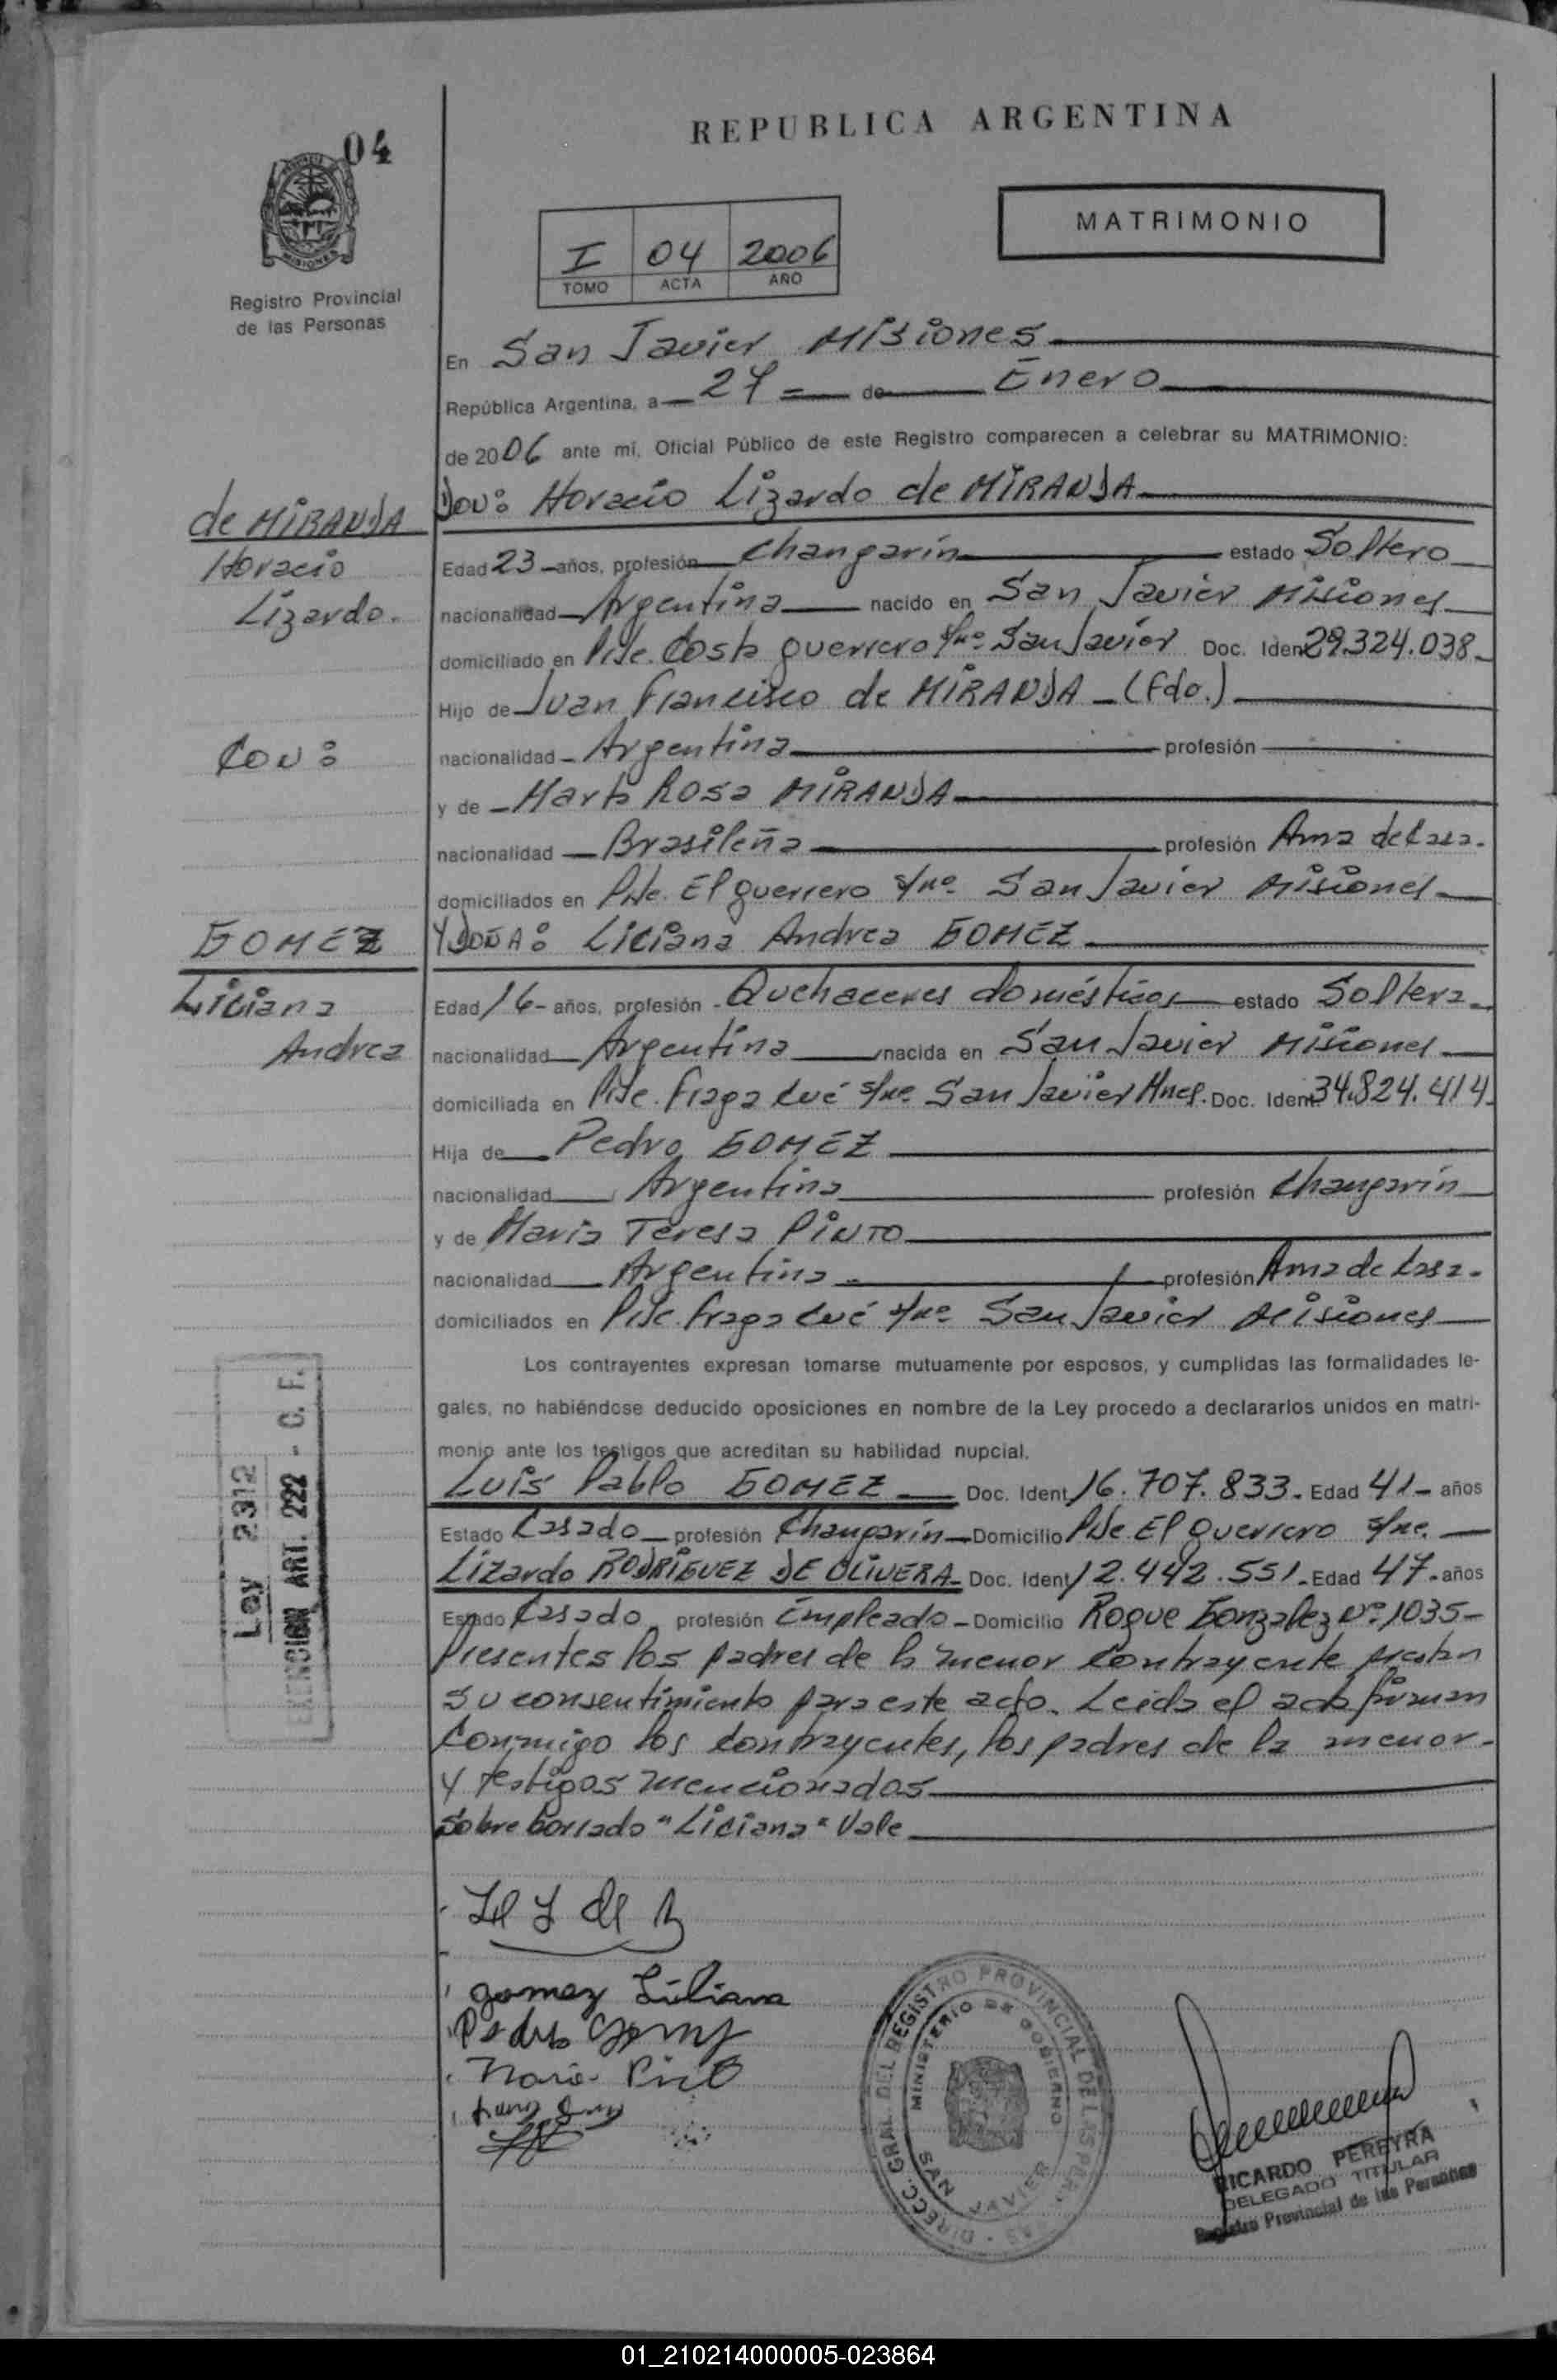 04
REPUBLICA ARGENTINA
MATRIMONIO
I 04 2006
TOMO ACTA AÑO
MISIONES
Registro Provincial
de las Personas
En San Javier Misiones
República Argentina, a 27 = de Enero
de 2006 ante mí, Oficial Público de este Registro comparecen a celebrar su MATRIMONIO:
de MIRANDA
Horacio
Lizardo.
Don: Horacio Lizardo de MIRANDA
Edad 23 - años, profesión Changarín estado Soltero
nacionalidad Argentina nacido en San Javier Misiones
domiciliado en Pje. Costa guerrero s/nº San Javier Doc. Ident 29.324.038
Hijo de Juan Francisco de MIRANDA - (Fdo.)
Con:
nacionalidad - Argentina profesión
y de - Marta Rosa MIRANDA
nacionalidad - Brasileña profesión Ama de Casa.
domiciliados en Pje. El guerrero s/nº San Javier Misiones
GOMEZ
Liciana
Andrea
Y DOÑA: Liciana Andrea GOMEZ
Edad 16 - años, profesión - Quehaceres domésticos estado Soltera
nacionalidad Argentina nacida en San Javier Misiones
domiciliada en Pje. Fraga Cué s/nº San Javier Mnes. Doc. Ident. 34.824.414
Hija de Pedro GOMEZ
nacionalidad Argentina profesión Changarín
y de Maria Teresa PINTO
nacionalidad Argentina profesión Ama de Casa.
domiciliados en Pje. Fraga Cué s/nº San Javier Misiones
Los contrayentes expresan tomarse mutuamente por esposos, y cumplidas las formalidades le-
gales, no habiéndose deducido oposiciones en nombre de la Ley procedo a declararlos unidos en matri-
monio ante los testigos que acreditan su habilidad nupcial.
Ley 2312
EXENCION ART. 222 - C. F.
Luis Pablo GOMEZ Doc. Ident 16.707.833. Edad 41 - años
Estado Casado profesión Changarín - Domicilio Pje El guerrero s/nº.
Lizardo RODRIGUEZ DE OLIVERA Doc. Ident 12.442.551. Edad 47 - años
Estado Casado profesión Empleado - Domicilio Roque Gonzalez Nº 1035 -
Presentes los padres de la menor contrayente prestan
su consentimiento para este acto. Leida el acta firman
conmigo los contrayentes, los padres de la menor -
y testigos mencionados
Sobre borrado "Liciana" Vale
gomez Liliana
Pedro Gomez
Maria Pinto
DIRECC. GRAL. DEL REGISTRO PROVINCIAL DE LAS PERS.
MINISTERIO DE GOBIERNO
SAN JAVIER
RICARDO PEREYRA
DELEGADO TITULAR
Registro Provincial de las Personas
01_210214000005-023864